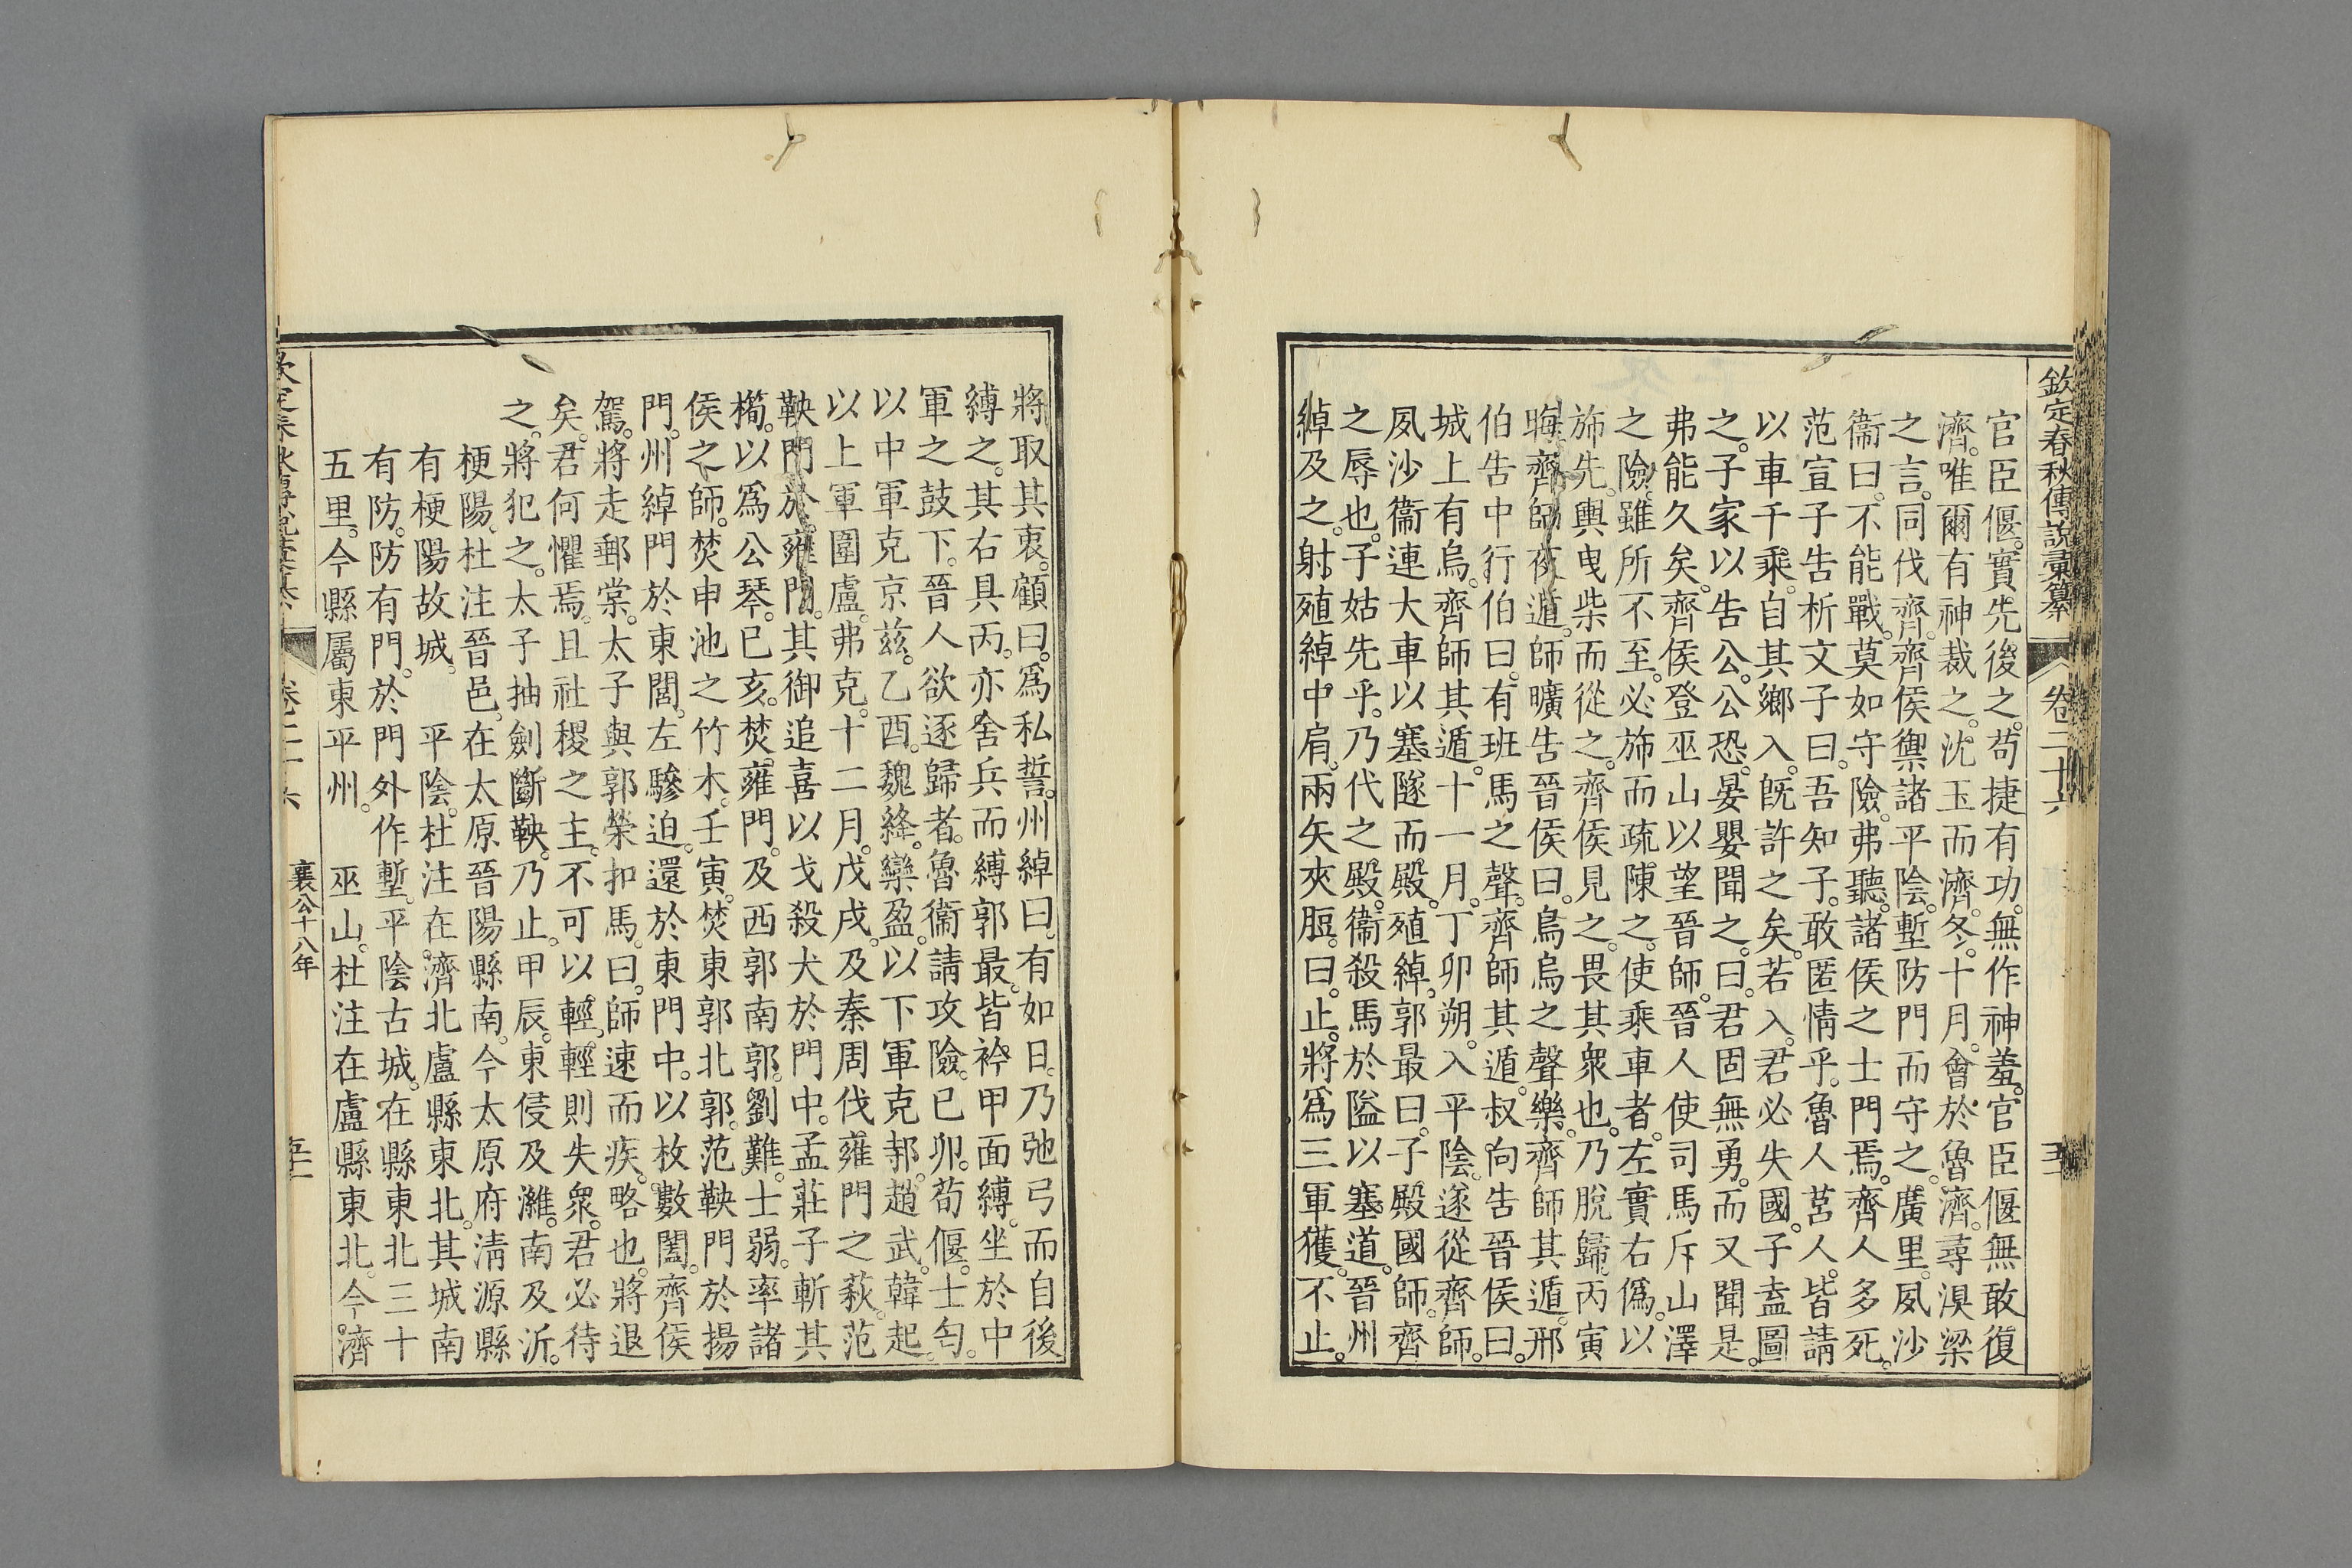 欽定春秋傳說彙纂 卷二十六
官臣偃。實先後之。苟捷有功。無作神羞。官臣偃無敢復
濟。唯爾有神裁之。沈玉而濟。冬。十月。會於魯濟。尋湨梁
之言。同伐齊。齊侯禦諸平陰。塹防門而守之。廣里。夙沙
衞曰。不能戰。莫如守險。弗聽。諸侯之士門焉。齊人多死。
范宣子告析文子曰。吾知子。敢匿情乎。魯人莒人。皆請
以車千乘。自其鄉入。旣許之矣。若入。君必失國。子盍圖
之。子家以告公。公恐。晏嬰聞之。曰。君固無勇。而又聞是。
弗能久矣。齊侯登巫山以望晉師。晉人使司馬斥山澤
之險。雖所不至。必旆而疏陳之。使乘車者。左實右僞。以
旆先。輿曳柴而從之。齊侯見之。畏其衆也。乃脫歸。丙寅
晦。齊師夜遁。師曠告晉侯曰。烏烏之聲樂。齊師其遁。邢
伯告中行伯曰。有班馬之聲。齊師其遁。叔向告晉侯曰。
城上有烏。齊師其遁。十一月。丁卯朔。入平陰。遂從齊師。
夙沙衞連大車以塞隧而殿。殖綽。郭最曰。子殿國師。齊
之辱也。子姑先乎。乃代之殿。衞殺馬於隘以塞道。晉州
綽及之。射殖綽。中肩。兩矢夾脰。曰。止。將爲三軍獲。不止。
將取其衷。顧曰。爲私誓。州綽曰。有如日。乃弛弓而自後
縛之。其右具丙。亦舍兵而縛郭最。皆衿甲面縛。坐於中
軍之鼓下。晉人欲逐歸者。魯衞請攻險。已卯。荀偃。士匄。
以中軍克京茲。乙酉。魏絳。欒盈。以下軍克邿。趙武。韓起。
以上軍圍盧。弗克。十二月。戊戌。及秦周伐雍門之萩。范
鞅門於雍門。其御追喜以戈殺犬於門中。孟莊子斬其
橁。以爲公琴。已亥。焚雍門。及西郭南郭。劉難。士弱。率諸
侯之師。焚申池之竹木。壬寅。焚東郭北郭。范鞅門於揚
門。州綽門於東閭。左驂迫。還於東門中。以枚數闔。齊侯
駕。將走郵棠。太子與郭榮扣馬。曰。師速而疾。略也。將退
矣。君何懼焉。且社稷之主。不可以輕。輕則失衆。君必待
之。將犯之。太子抽劍斷鞅。乃止。甲辰。東侵及濰。南及沂。
梗陽。杜注晉邑。在太原晉陽縣南。今太原府淸源縣
有梗陽故城。 平陰。杜注在濟北盧縣東北。其城南
有防。防有門。於門外作塹。平陰古城。在縣東北三十
五里。今縣屬東平州。 巫山。杜注在盧縣東北。今濟
襄公十八年